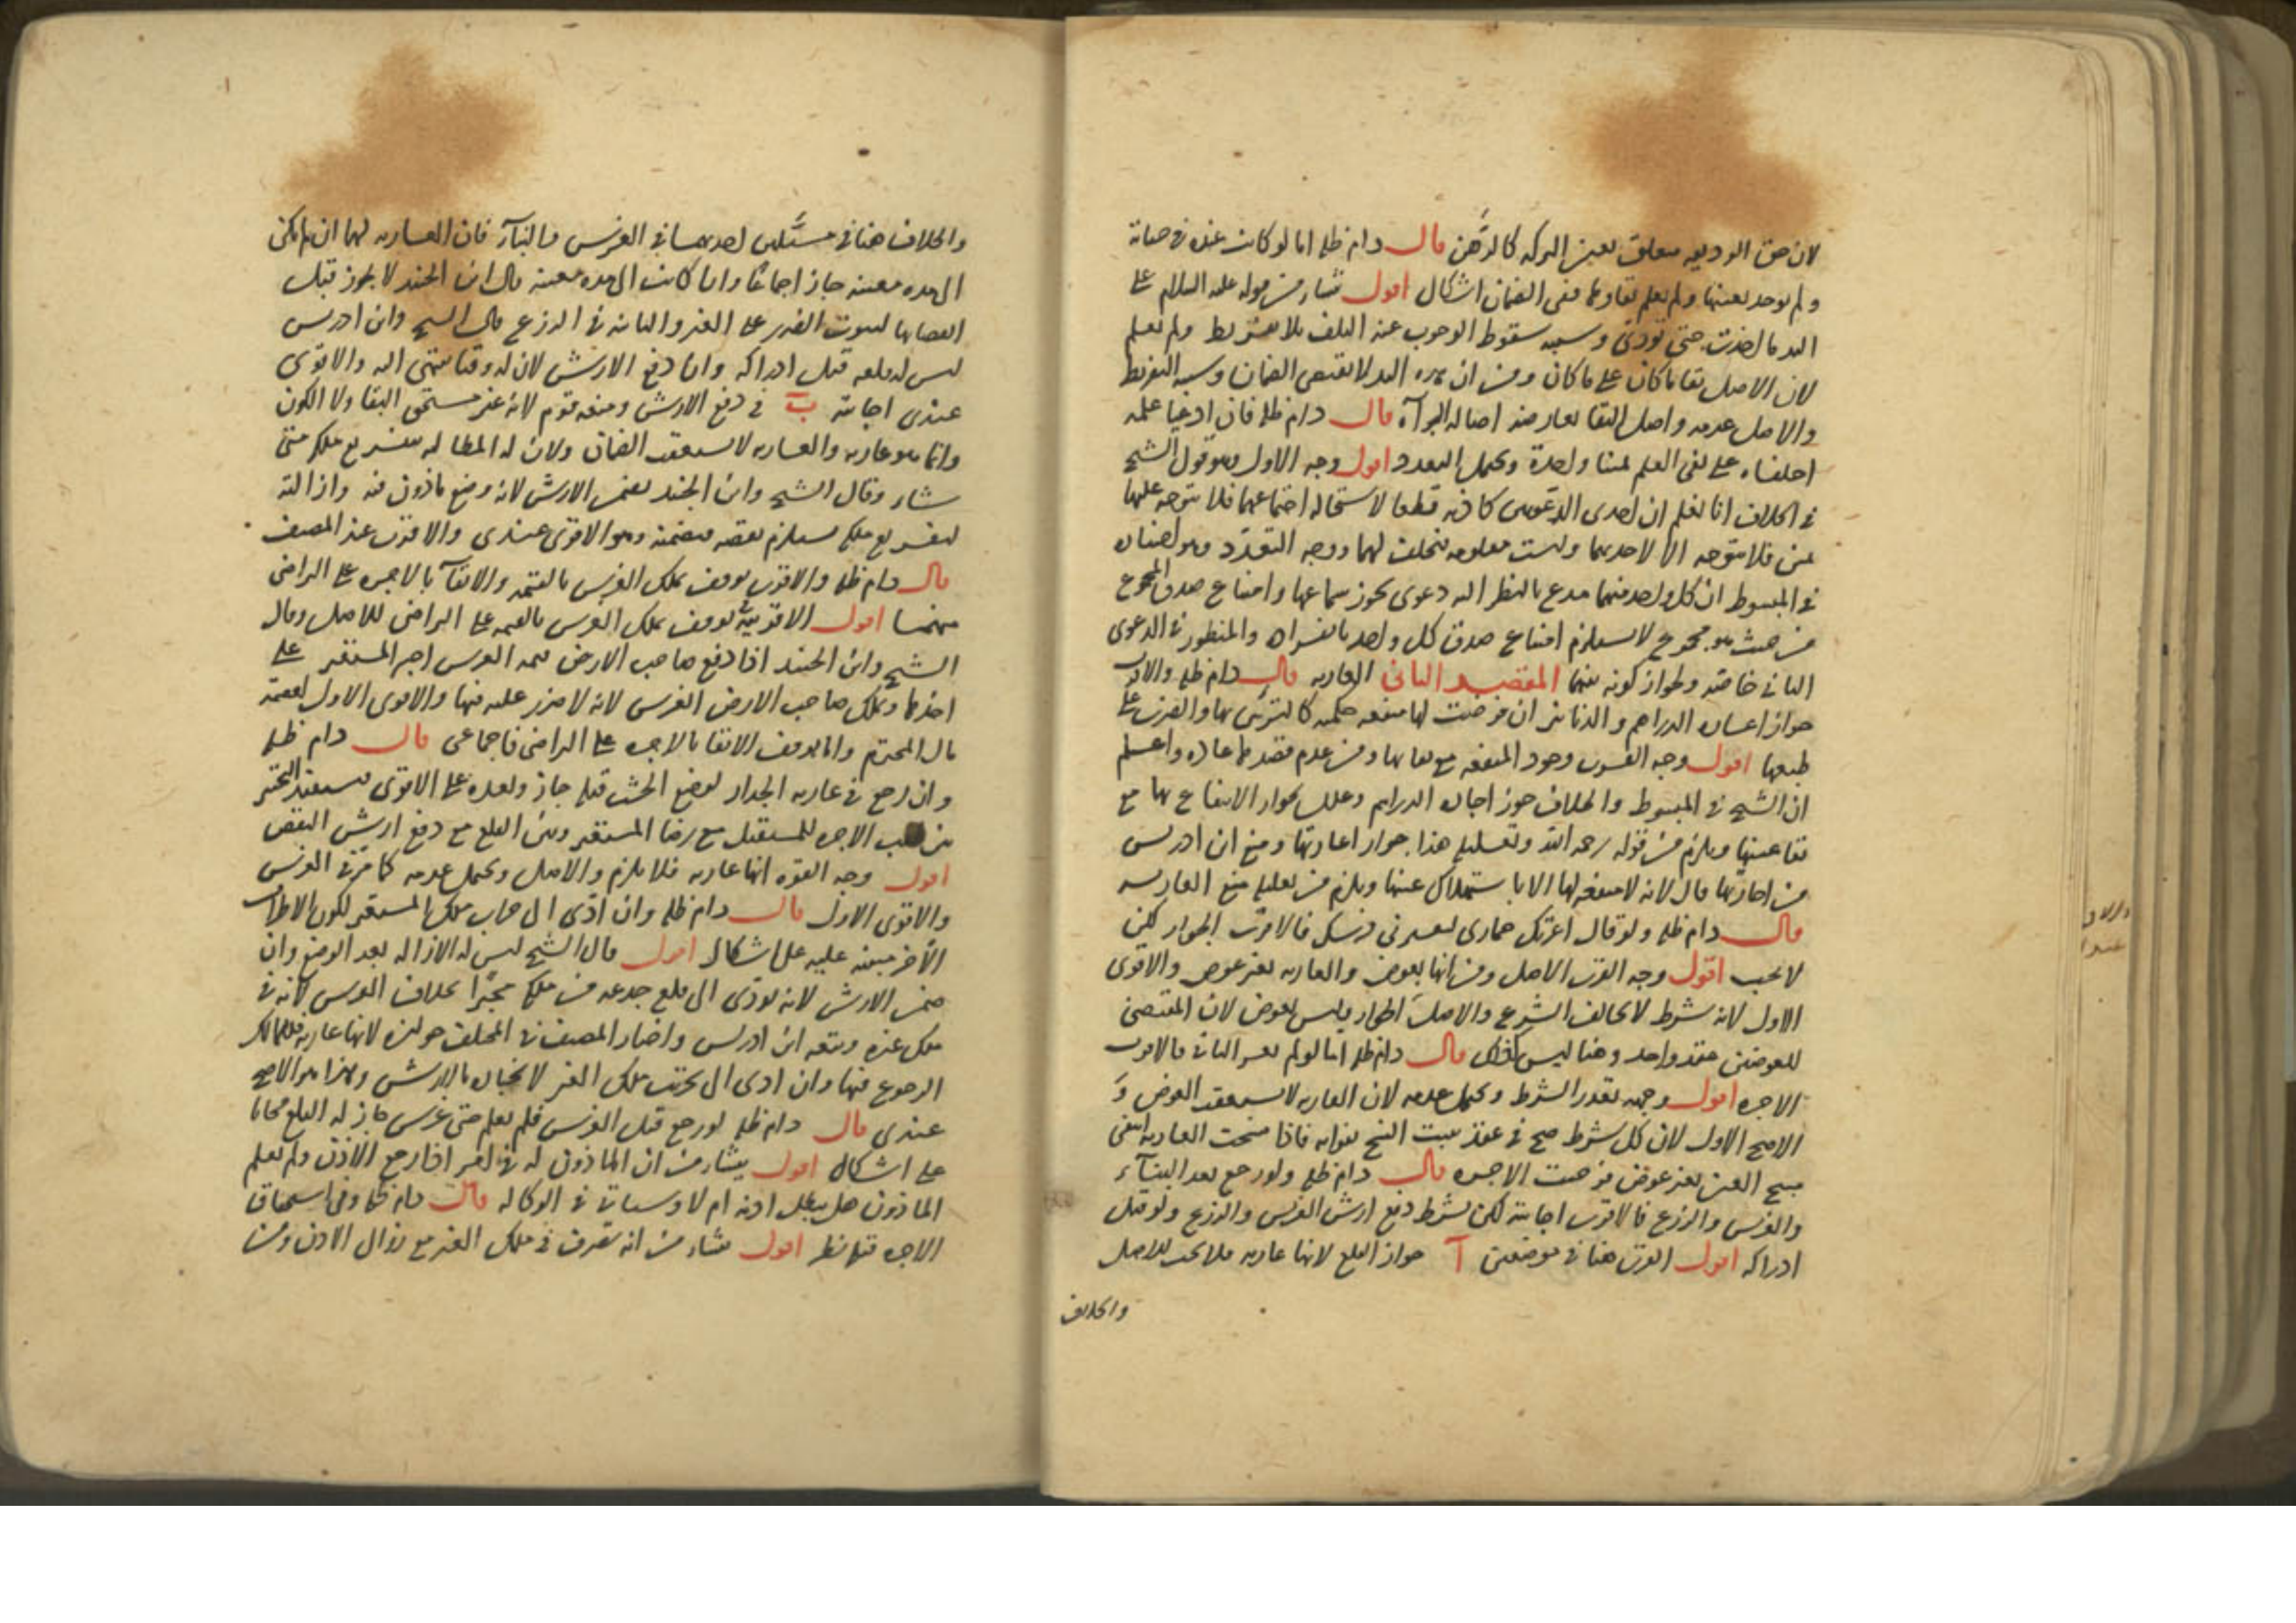 لان حق الوديعه متعلق بعين التركه كالرهن قال دام ظله اما لو كانت عنده في حياته
ولم توجد بعينها ولم يعلم بقاؤها ففى الضمان اشكال اقول ينشا من قوله عليه السلام على
اليد ما اخذت حتى تؤدى وسببه سقوط الوجوب عنه التلف بلا تفريط ولم يعلم
لان الاصل بقا ما كان على ما كان ومن ان هذه اليد لا تقتضى الضمان وسببه التفريط
والاصل عدمه واصل البقا يعارضه اصالة البراة قال دام ظله فان ادعيا علمه
احلفناه على نفى العلم يمينا واحدة ويحتمل التعدد اقول وجه الاول وهو قول الشيخ
في الخلاف انا نعلم ان احدى الدعويين كاذبه قطعا لاستحاله اجتماعهما فلا يتوجه عليهما
يمين فلا يتوجه الا لاحدهما وليست معلومه فيحلف لهما ووجه التعدد وهو اختياره
في المبسوط ان كل واحد منهما مدع بالنظر اليه دعوى يجوز سماعها وامتناع صدق المجموع
من حيث هو مجموع لا يستلزم امتناع صدق كل واحد بانفراده والمنظور في الدعوى
الثاني خاصة ولجواز كونه بينهما المقصد الثانى العاريه قال دام ظله والاقرب
جواز اعارة الدراهم والدنانير ان فرضت لها منفعه حكميه كالتزين بها والضرب على
طبعها اقول وجه القرب وجود المنفعه مع بقائها ومن عدم قصدها عادة واعلم
ان الشيخ في المبسوط والخلاف جوز اجارة الدراهم وعلل بجواز الانتفاع بها مع
بقا عينها ويلزم من قوله رحمه الله وتعليله هذا جواز اعارتها ومنع ابن ادريس
من اجارتها قال لانه لا منفعه لها الا باستهلاك عينها ويلزم من تعليله منع العاريه
قال دام ظله ولو قال اعرتك حمارى لتعيرنى فرسك فالاقرب الجواز لكن
لا يجب اقول وجه القرب الاصل ومن انها بعوض والعاريه بغير عوض والاقوى
الاول لانه شرط لا يخالف الشرع والاصل الجواز وليس بعوض لان المقتضى
للعوضين عقد واحد وهنا ليس كذلك قال دام ظله اما لو لم يعر الثانى فالاقرب
الاجره اقول وجهه تعذر الشرط ويحتمل عدمه لان العاريه لا تستعقب العوض و
الاصح الاول لان كل شرط صح في عقد يثبت الفسخ بفواته فاذا فسخت العاريه انتفى
مبيح العين بغير عوض فرضت الاجره قال دام ظله ولو رجع بعد البناء
والغرس والزرع فالاقرب اجابته لكن بشرط دفع ارش الغرس والزرع ولو قبل
ادراكه اقول القرب هنا في موضعين آ جواز القلع لانها عاريه فلا يجب للاصل
والخلاف
والخلاف هنا في مسئلتين احديهما في الغرس والبناء فان العاريه لهما ان لم يكن
الى مده معينه جاز اجماعا واما كانت الى مده معينه قال ابن الجنيد لا يجوز قبل
انقضايها لثبوت الضرر على الغير والثانيه في الزرع قال الشيخ وابن ادريس
ليس له قلعه قبل ادراكه وانما دفع الارش لان له وقتا ينتهى اليه والاقوى
عندى اجابته ب في دفع الارش ومنعه قوم لانه غير مستحق البقا ولا الكون
وانما هو عاريه والعاريه لا تستعقب الضمان ولان له المطالبه بتفريع ملكه متى
شاء وقال الشيخ وابن الجنيد يضمن الارش لانه وضع ماذون فيه وازالته
لتفريع ملكه يستلزم نقصه فيضمنه وهو الاقوى عندى والاقرب عند المصنف
قال دام ظله والاقرب توقف تملك الغرس بالقيمه والابقاء بالاجره على التراضى
منهما اقول الاقرب توقف تملك الغرس بالقيمه على التراضى للاصل وقال
الشيخ وابن الجنيد اذا دفع صاحب الارض قيمه الغرس اجبر المستعير على
اخذها وتملك صاحب الارض الغرس لانه لا ضرر عليه فيها والاقوى الاول لعصمة
مال المحترم واما توقف الابقا بالاجره على التراضى فاجماعى قال دام ظله
وان رجع في عاريه الجدار لوضع الخشب قبله جاز وبعده على الاقوى فيستفيد التخيير
بين طلب الاجره للمستقبل مع رضا المستعير وبين القلع مع دفع ارش النقض
اقول وجه القوه انها عاريه فلا يلزم والاصل ويحتمل عدمه كما مر في الغرس
والاقوى الاول قال دام ظله وان ادى الى خراب ملك المستعير لكون الاطراف
الاخر مبنيه عليه على اشكال اقول قال الشيخ ليس له الازاله بعد الوضع وان
ضمن الارش لانه يؤدى الى قلع جذعه من ملكه مجبرا بخلاف الغرس لانه في
ملك غيره وتبعه ابن ادريس واختار المصنف في المختلف جوازه لانها عاريه فللمالك
الرجوع فيها وان ادى الى تخريب ملك الغير لانجباره بالارش وهذا هو الاصح
عندى قال دام ظله لو رجع قبل الغرس فلم يعلم حتى غرس جاز له القلع مجانا
على اشكال اقول ينشا من ان الماذون له في الغير اذا رجع الاذن ولم يعلم
الماذون هل يبطل اذنه ام لا وسياتى في الوكاله قال دام ظله وفى استحقاق
الاجره قبله نظر اقول ينشاء من انه تصرف في ملك الغير مع زوال الاذن ومن